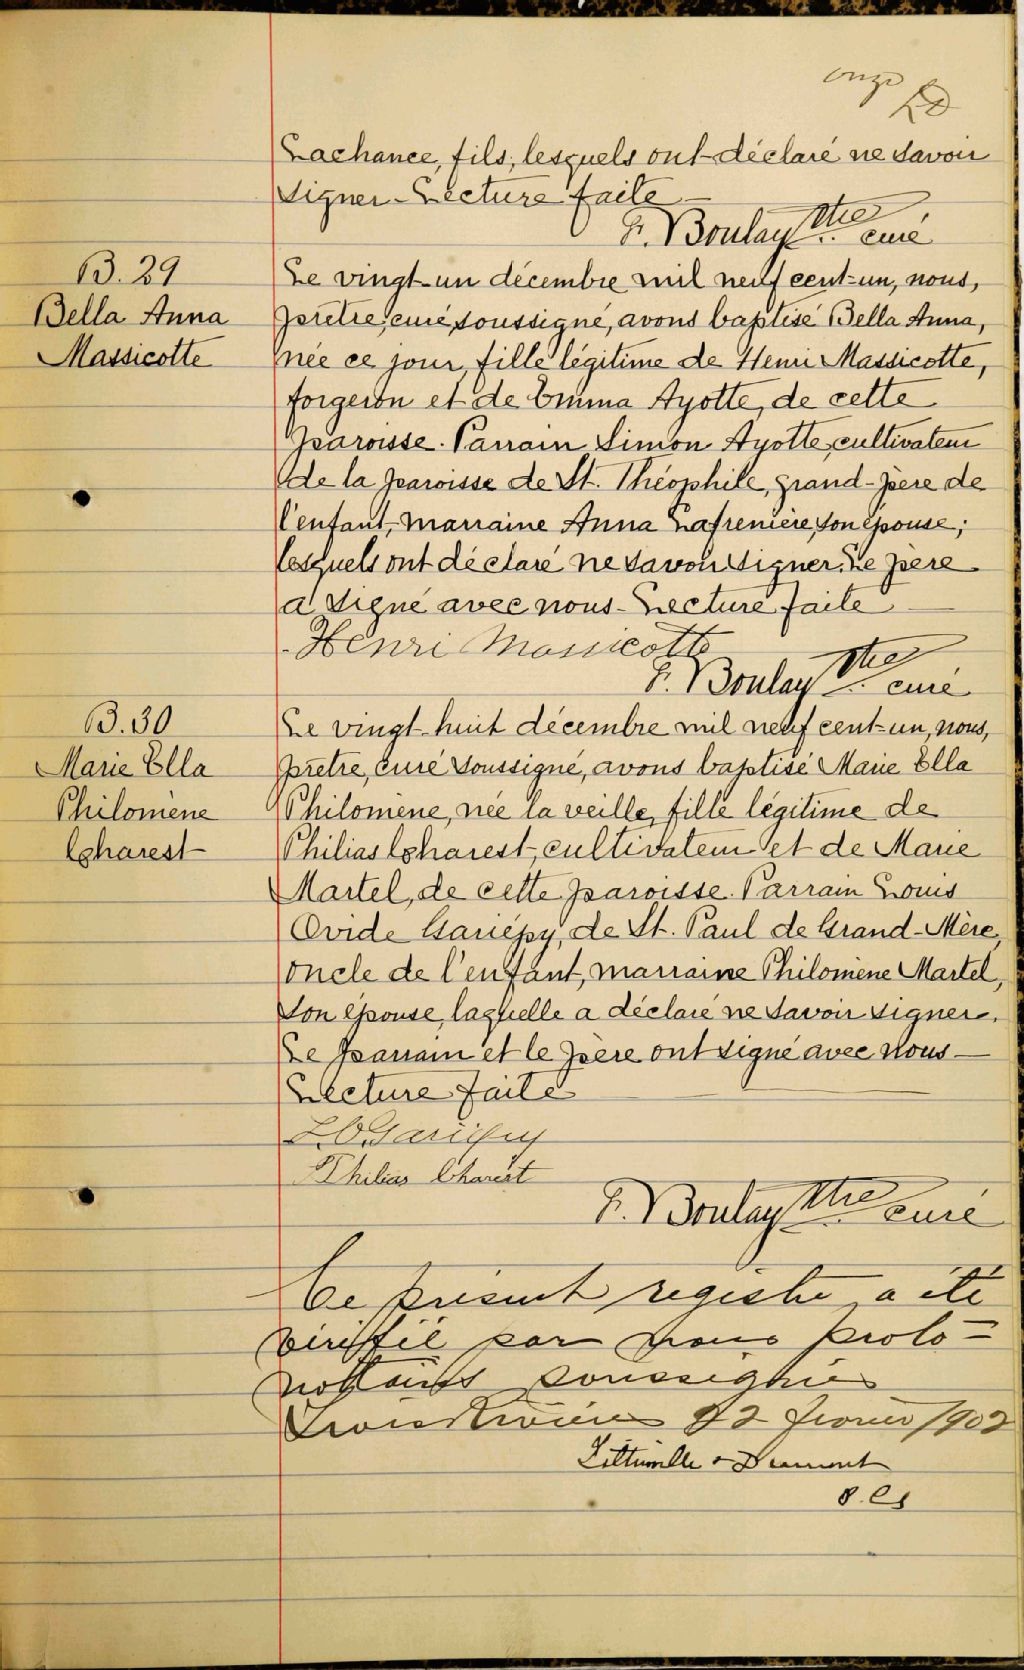 onze
Lachance, fils, lesquels ont déclaré ne savoir
signer - Lecture faite
F. Boulay Ptre curé
B. 29
Bella Anna
Massicotte
Le vingt-un décembre mil neuf cent-un, nous,
prêtre, curé soussigné, avons baptisé Bella Anna,
née ce jour, fille légitime de Henri Massicotte,
forgeron et de Emma Ayotte, de cette
paroisse. Parrain Simon Ayotte, cultivateur
de la paroisse de St. Théophile, grand-père de
l'enfant, marraine Anna Lafrenière, son épouse;
lesquels ont déclaré ne savoir signer. Le père
a signé avec nous - Lecture faite
Henri Massicotte
F. Boulay Ptre curé
B. 30
Marie Ella
Philomène
Charest
Le vingt-huit décembre mil neuf cent-un, nous,
prêtre, curé soussigné, avons baptisé Marie Ella
Philomène, née la veille, fille légitime de
Philias Charest, cultivateur et de Marie
Martel, de cette paroisse. Parrain Louis
Ovide Gariépy, de St. Paul de Grand-Mère,
oncle de l'enfant, marraine Philomène Martel,
son épouse, laquelle a déclaré ne savoir signer.
Le parrain et le père ont signé avec nous -
Lecture faite
L.O. Gariépy
Philias Charest
F. Boulay Ptre curé
Ce présent registre a été
vérifié par nous proto=
notaires soussignés
Trois Rivières 22 février 1902